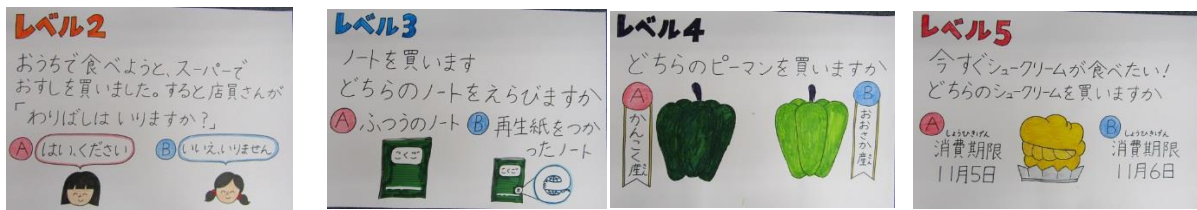 レベル2
おうちで食べようと、スーパーで
おすしを買いました。すると店員さんが
「わりばしは いりますか?」
A はい、ください
B いいえ、いりません
レベル3
ノートを買います
どちらのノートをえらびますか
A ふつうのノート
B 再生紙をつか
ったノート
こくご
こくご
レベル4
どちらのピーマンを買いますか
A
かんこく産
B
おおさか産
さん
レベル5
今すぐシュークリームが食べたい!
どちらのシュークリームを買いますか
A
しょうひきげん
消費期限
11月5日
B
しょうひきげん
消費期限
11月6日